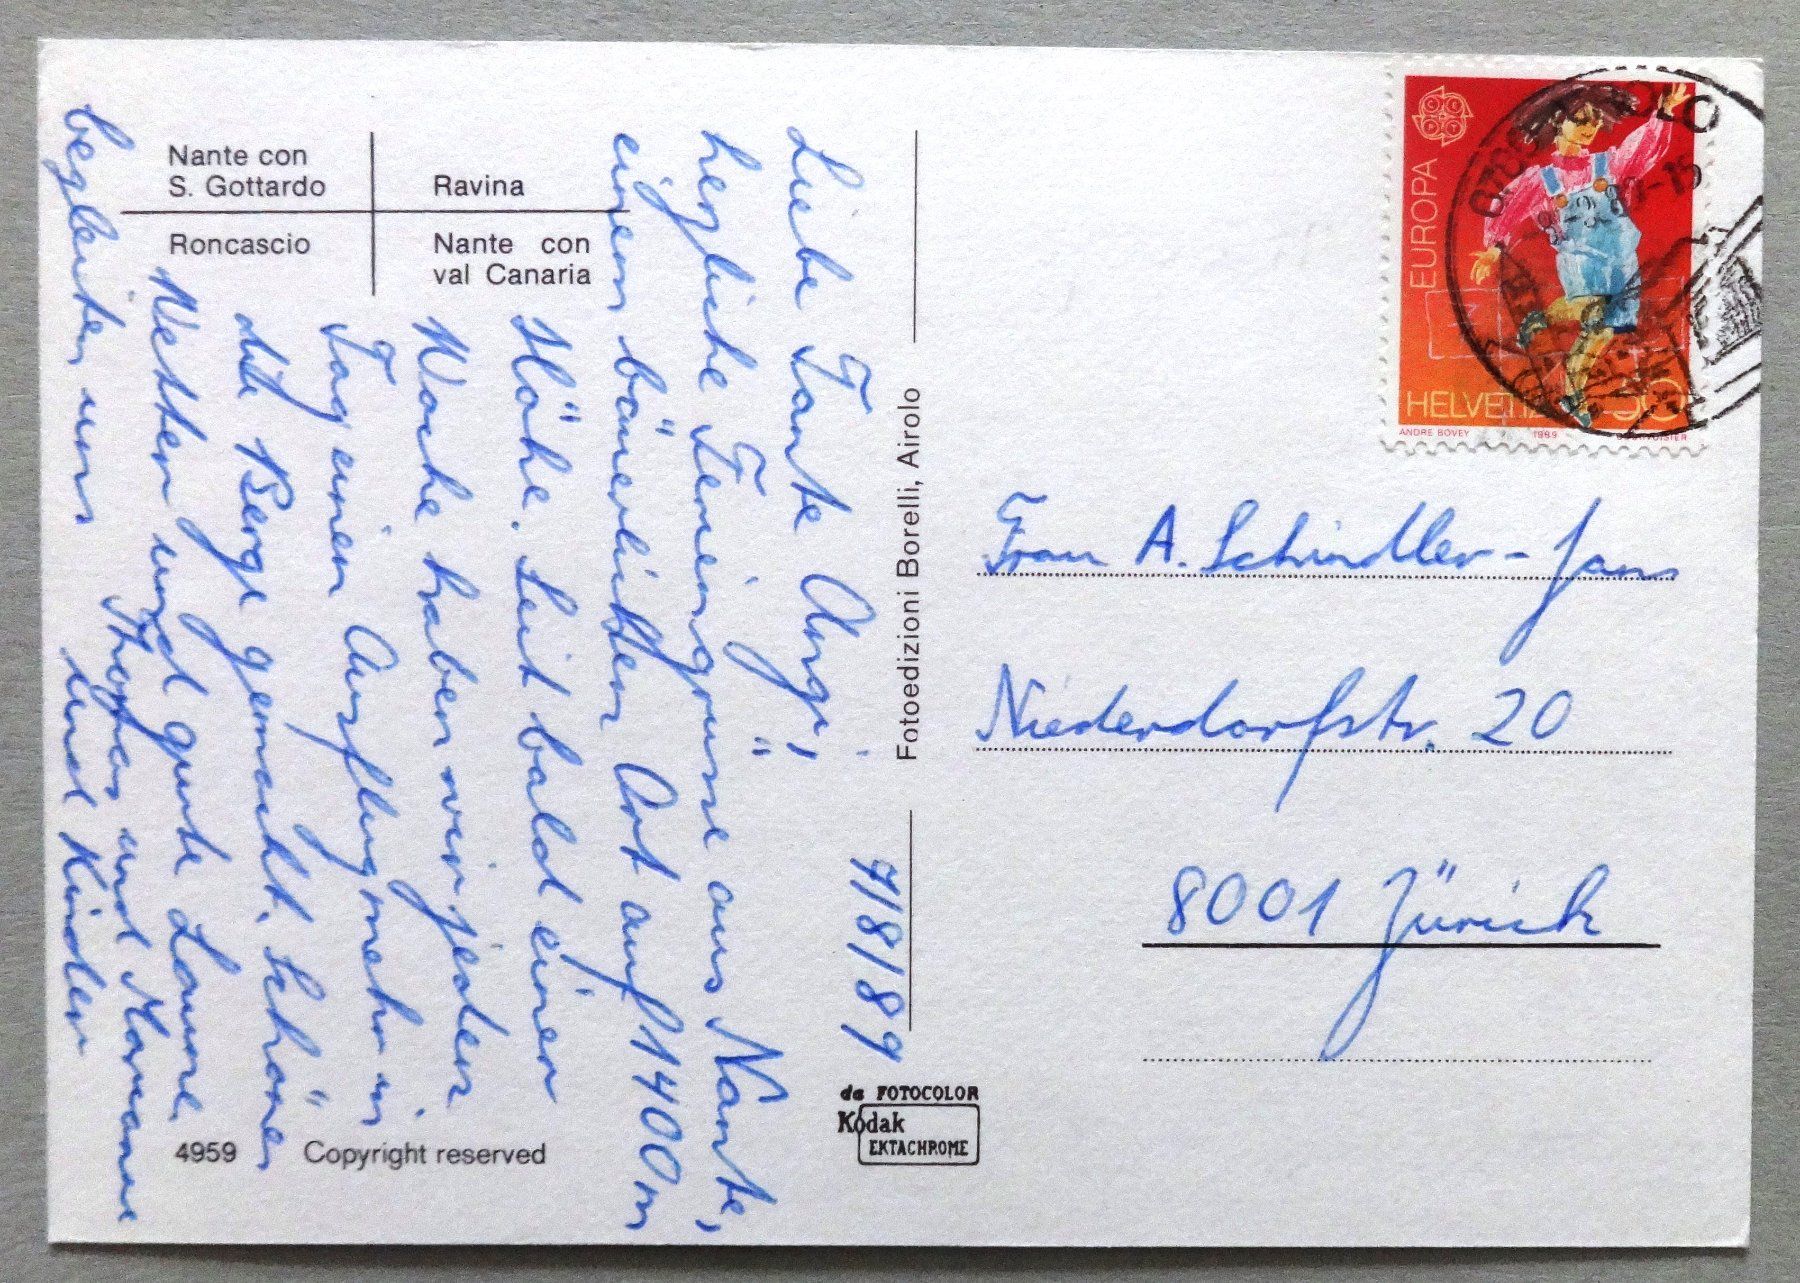 Nante con
S. Gottardo
Ravina
Roncascio
Nante con
val Canaria
Fotoedizioni Borelli, Airolo
4/8/89
Liebe Tante Angi,
herzliche Feriengrüsse aus Nante,
einem bäuerlichen Ort auf 1400 m
Höhe. Seit bald einer
Woche haben wir jeden
Tag einen Ausflug mehr in
die Berge gemacht. Schönes
Wetter und gute Laune
begleiten uns
und Marianne
und Kinder
4959
Copyright reserved
da FOTOCOLOR
Kodak
EKTACHROME
CEPT
EUROPA
HELVETIA
ANDRE BOVEY
1989
COURVOISIER
Frau A. Schindler-Jans
Niederdorfstr. 20
8001 Zürich